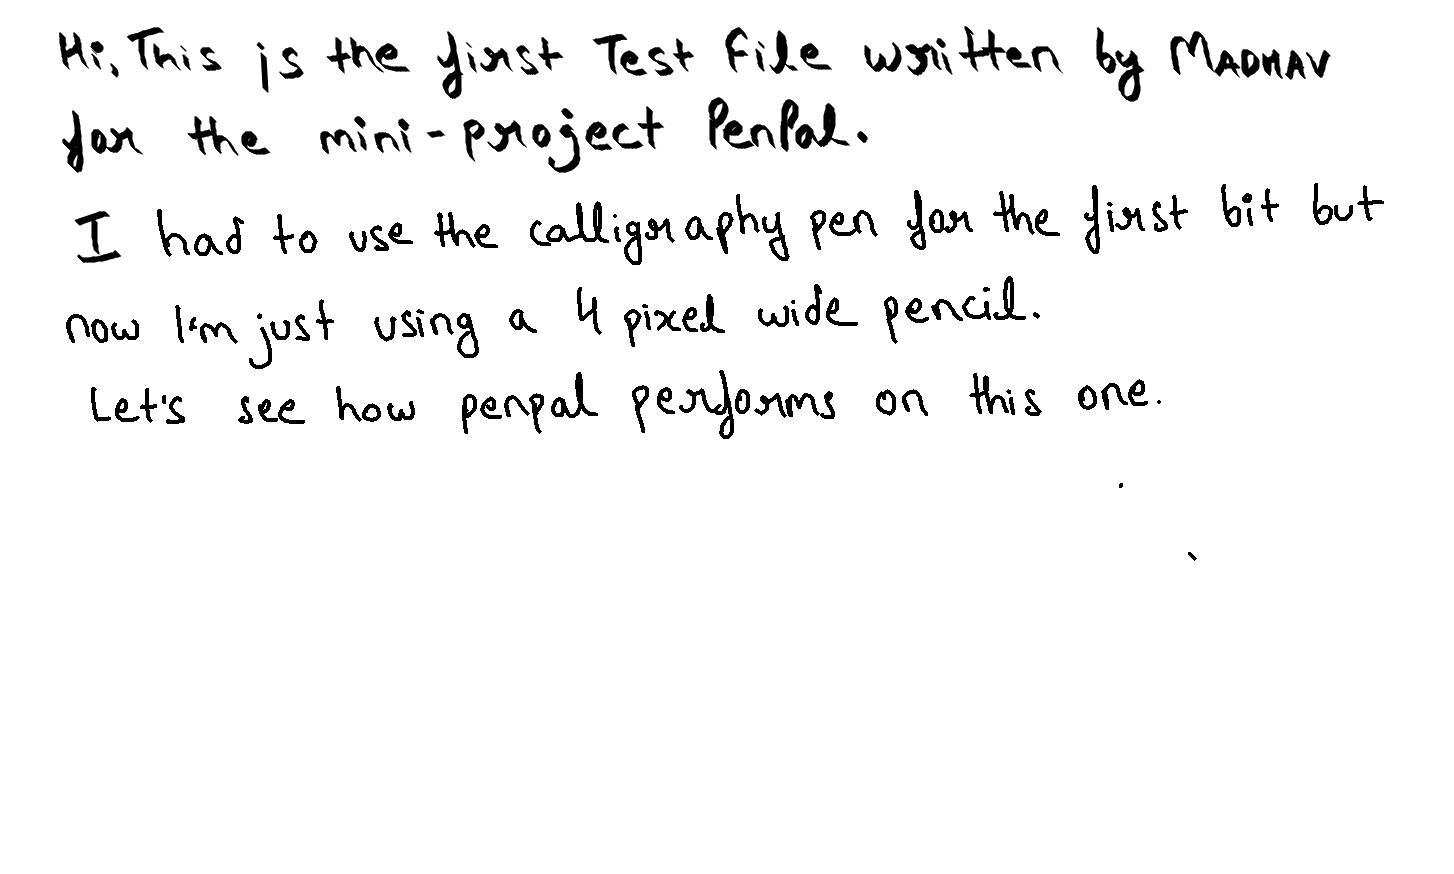 Hi, This is the first Test File written by MADHAV
for the mini-project PenPal.
I had to use the calligraphy pen for the first bit but
now I'm just using a 4 pixel wide pencil.
Let's see how penpal performs on this one.